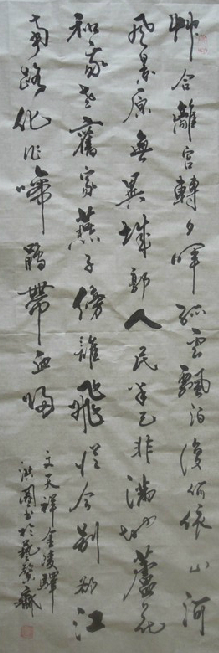 艸合離宮轉夕暉孤雲飄泊復何依山河
風景原無異城郭人民半已非滿地蘆花
和我老舊家燕子傍誰飛從今別卻江
南路化作啼鵑帶血歸
文天祥金陵驛
書於齋